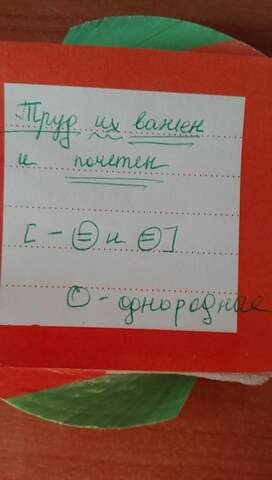 Труд их важен
и почетен
[ - (=) и (=) ]
O - однородные